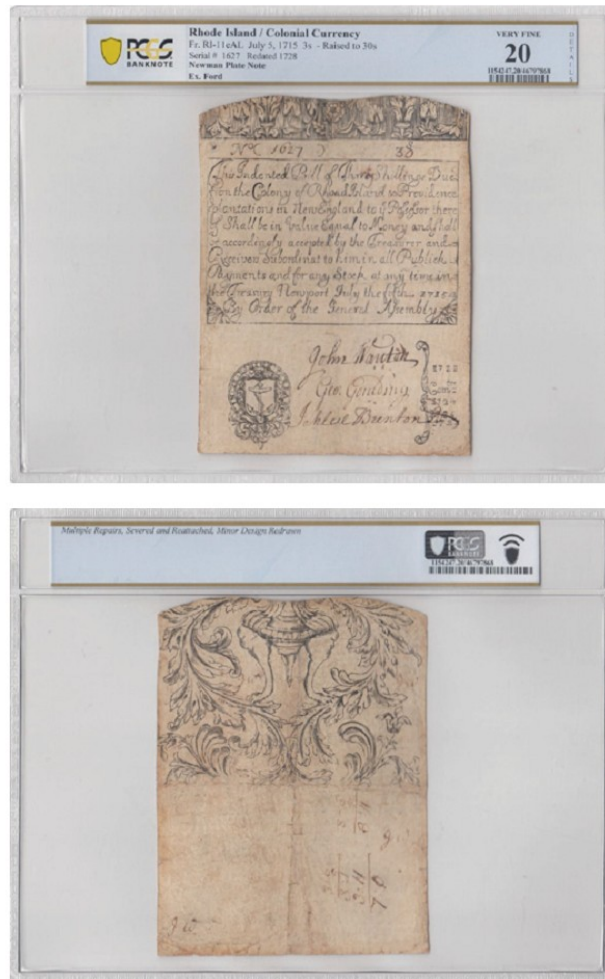 Rhode Island / Colonial Currency
Fr. RI-11eAL July 5, 1715 3s - Raised to 30s
Serial # 1627 Redated 1728
Newman Plate Note
Ex. Ford
PCGS
BANKNOTE
VERY FINE
20
DETAILS
1154247.20/46797868
No 1627
This Indented Bill of Thirty Shillings Due
from the Colony of Rhode Island & Providence
plantations in New England to ye Possessor there
of Shall be in Value Equal to Money and shall
be accordingly accepted by the Treasurer and
Receivers Subordinat to him in all Publick
Payments and for any Stock at any time in
the Treasury Newport July the fifth 1715
By Order of the General Assembly
John Wanton
Geo. Goulding
Jahleel Brenton
Multiple Repairs, Severed and Reattached, Minor Design Redrawn
PCGS
BANKNOTE
1154247.20/46797868